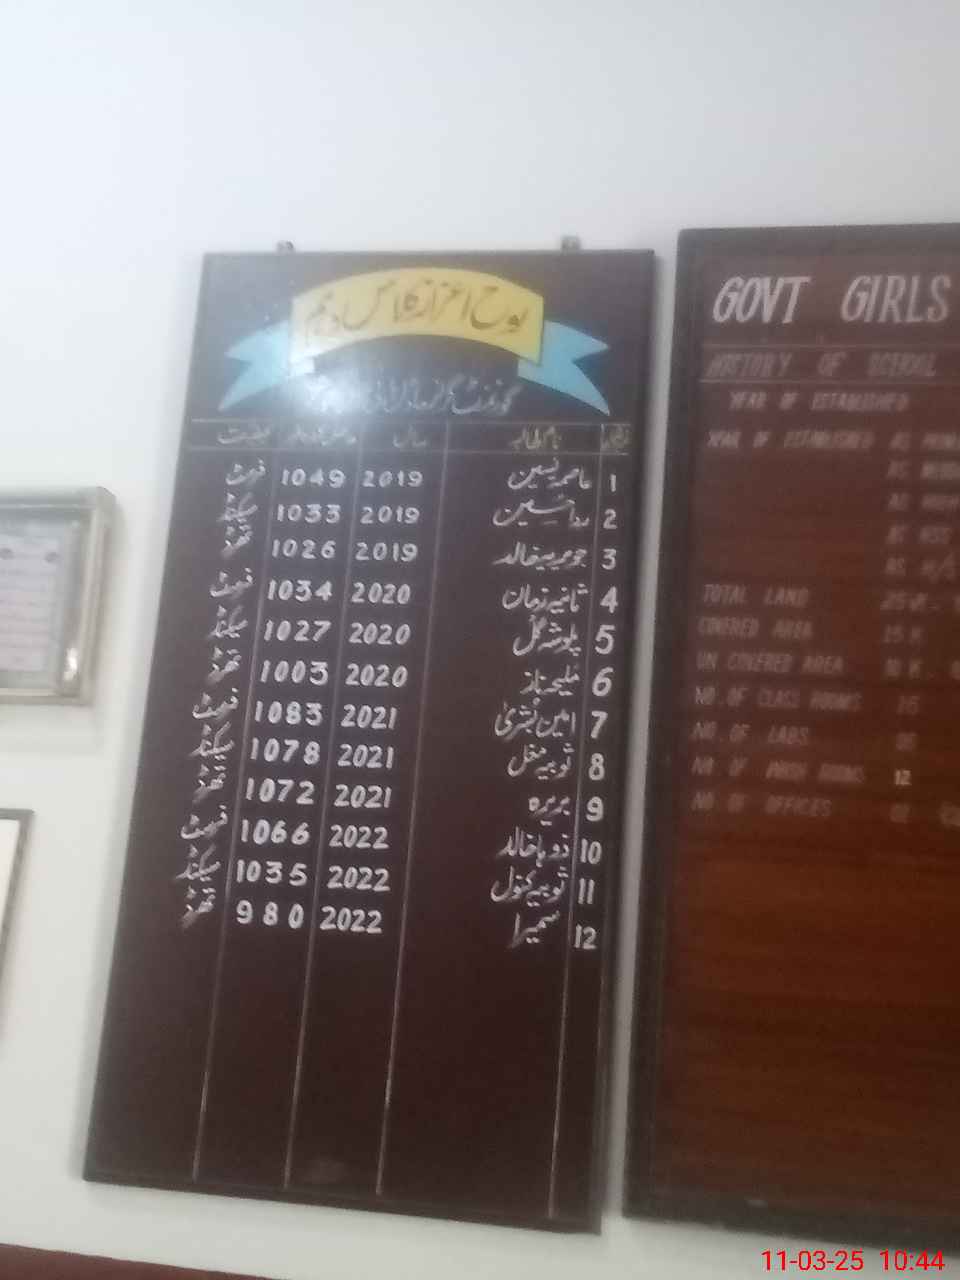 لوح اعزاز کلاس دہم
گورنمنٹ گرلز
نام طالبہ سال
1 عاصمہ یٰسین 2019 1049 فرسٹ
2 ردا حسین 2019 1033 سیکنڈ
3 جویریہ خالد 2019 1026 تھرڈ
4 ثانیہ زمان 2020 1034 فرسٹ
5 پلوشہ گل 2020 1027 سیکنڈ
6 ملیحہ ناز 2020 1003 تھرڈ
7 امین بشریٰ 2021 1083 فرسٹ
8 ثوبیہ مغل 2021 1078 سیکنڈ
9 بریرہ 2021 1072 تھرڈ
10 ذوہا خالد 2022 1066 فرسٹ
11 ثوبیہ کنول 2022 1035 سیکنڈ
12 سمیرا 2022 980 تھرڈ
GOVT GIRLS
HISTORY OF SCHOOL
YEAR OF ESTABLISHED
YEAR OF ESTABLISHED AS
AS
AS HIGH
AS HSS
AS
TOTAL LAND
COVERED AREA 15 K
UN COVERED AREA
NO. OF CLASS ROOMS
NO. OF LABS
NO. OF WASH ROOMS 12
NO. OF OFFICES
11-03-25 10:44